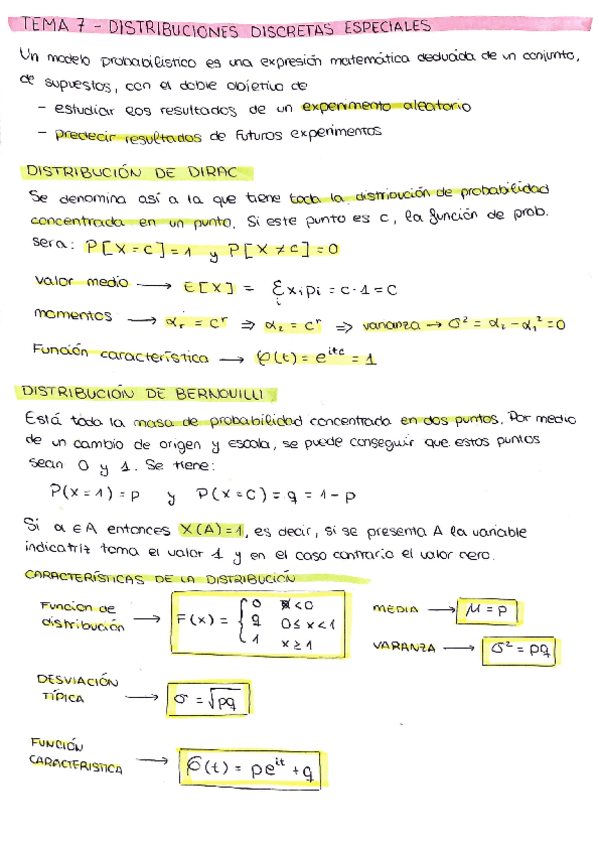 TEMA 7 - DISTRIBUCIONES DISCRETAS ESPECIALES
Un modelo probabilístico es una expresión matemática deducida de un conjunto,
de supuestos, con el doble objetivo de
- estudiar los resultados de un experimento aleatorio
- predecir resultados de futuros experimentos
DISTRIBUCIÓN DE DIRAC
Se denomina así a la que tiene toda la distribución de probabilidad
concentrada en un punto. Si este punto es c, la función de prob.
sera: P[X = c] = 1 y P[X ≠ c] = 0
valor medio → E[X] = Σ xi pi = c · 1 = c
i
momentos → αr = c^r ⇒ α2 = c^r ⇒ varianza → σ² = α2 - α1² = 0
Función característica → φ(t) = e^itc = 1
DISTRIBUCIÓN DE BERNOUILLI
Está toda la masa de probabilidad concentrada en dos puntos. Por medio
de un cambio de origen y escala, se puede conseguir que estos puntos
sean 0 y 1. Se tiene:
P(x = 1) = p y P(x = C) = q = 1 - p
Si a ∈ A entonces X(A) = 1, es decir, si se presenta A la variable
indicatriz toma el valor 1 y en el caso contrario el valor cero.
CARACTERÍSTICAS DE LA DISTRIBUCIÓN
Funcion de distribución → F(x) = { 0 x < 0
q 0 ≤ x < 1
1 x ≥ 1
MEDIA → μ = p
VARANZA → σ² = pq
DESVIACIÓN
TÍPICA → σ = √pq
FUNCIÓN
CARACTERISTICA → φ(t) = pe^it + q